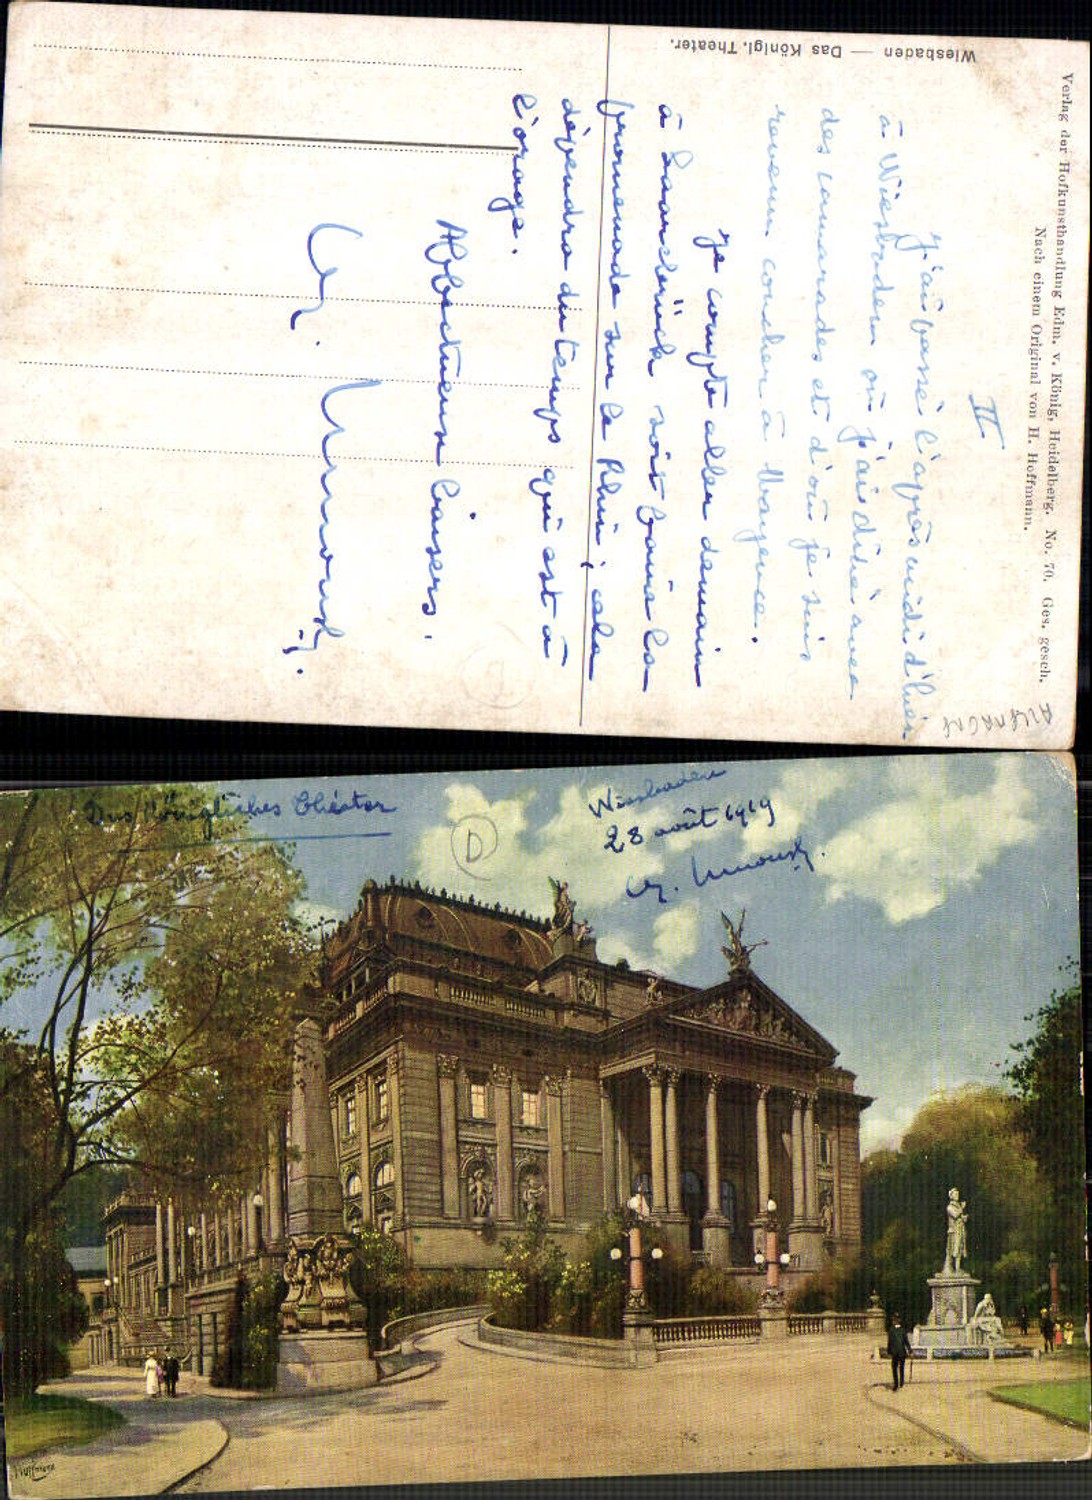 Wiesbaden — Das Königl. Theater.
Verlag der Hofkunsthandlung Edm. v. König, Heidelberg. No. 70. Ges. gesch.
Nach einem Original von H. Hoffmann.
ALLEMAGNE
II
J'ai passé l'après midi d'hier
à Wiesbaden où j'ai dîné avec
des camarades et d'où je suis
revenu coucher à Mayence.
Je compte aller demain
à Saarbrück soit faire la
promenade sur le Rhin ; cela
dépendra du temps qui est à
l'orage.
Affectueux baisers.
Das Königliches Théater
Wiesbaden
28 août 1919
D
Hoffmann